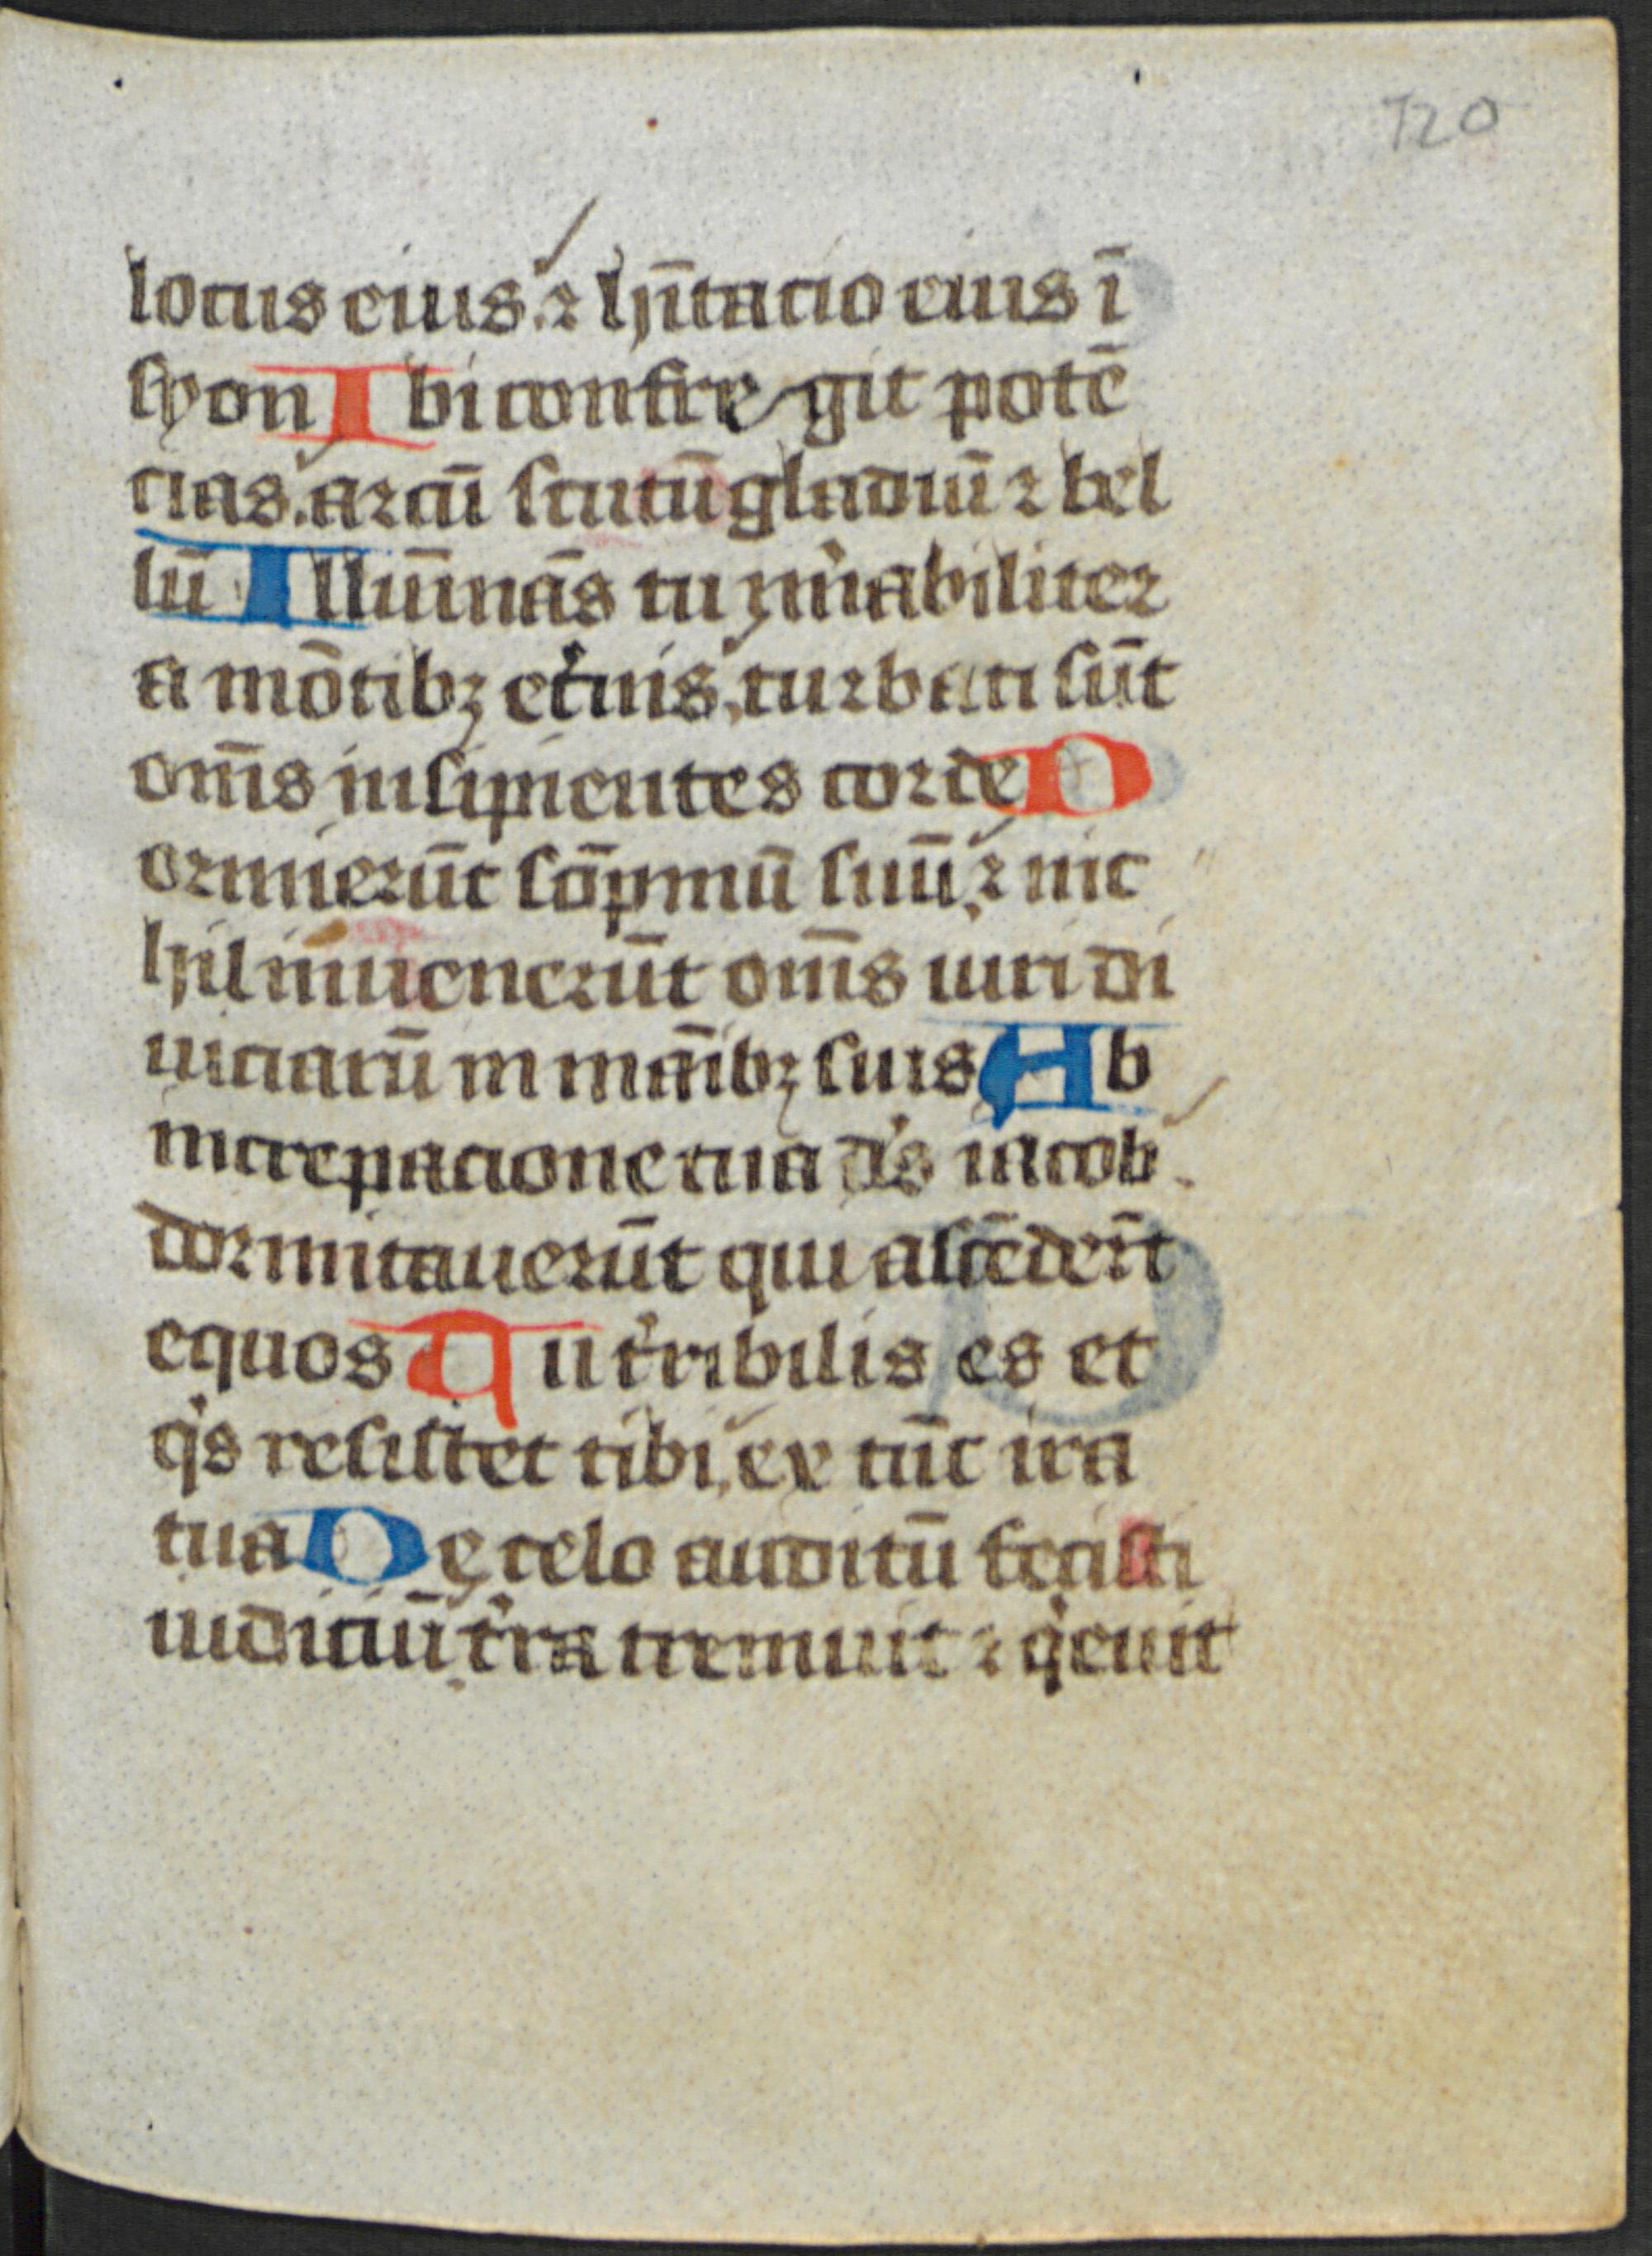 120
locus eius. ⁊ hītacio eius ī
syon Ibi confregit potē
cias. arcū scutū gladiū ⁊ bel
lū Illuīnās tu mirabiliter
a mōtibꝫ et̾nis. turbati sūt
om̄s insipientes corde D
ormierūt sōpmū suū. ⁊ nic
hil inuenerūt om̄s uiri di
uiciarū in manibꝫ suis Ab
increpacione tua ds̾ iacob.
dormitauerūt qui ascēder̄t
equos Tu t̾ribilis es et
qis resistet tibi. ex tūc ira
tua De celo auditū fecisti
iudiciū t̾ra tremuit ⁊ qieuit